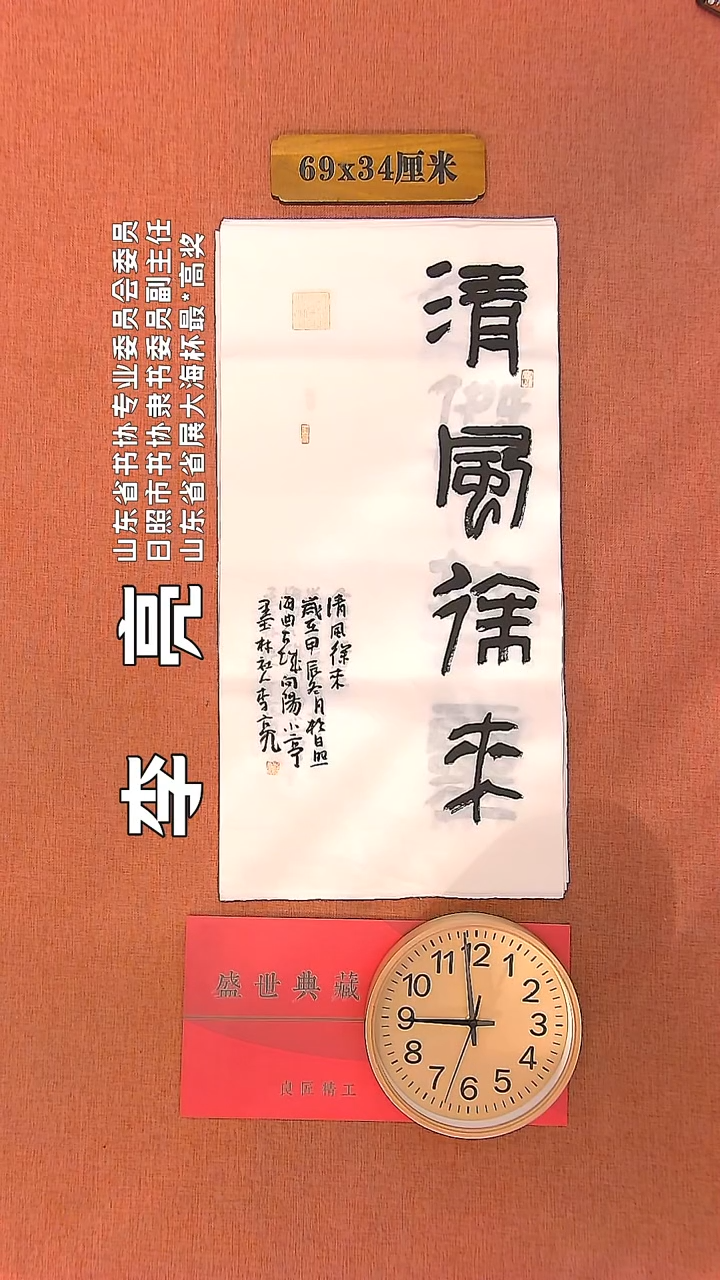 69x34厘米
清風徐来
清风徐来
歲在甲辰冬月於日照
海曲古城向陽小亭
墨林社人李亮
李 亮
山东省书协专业委员会委员
日照市书协隶书委员副主任
山东省省展大海杯最*高奖
盛世典藏
良匠精工
12
1
2
3
4
5
6
7
8
9
10
11